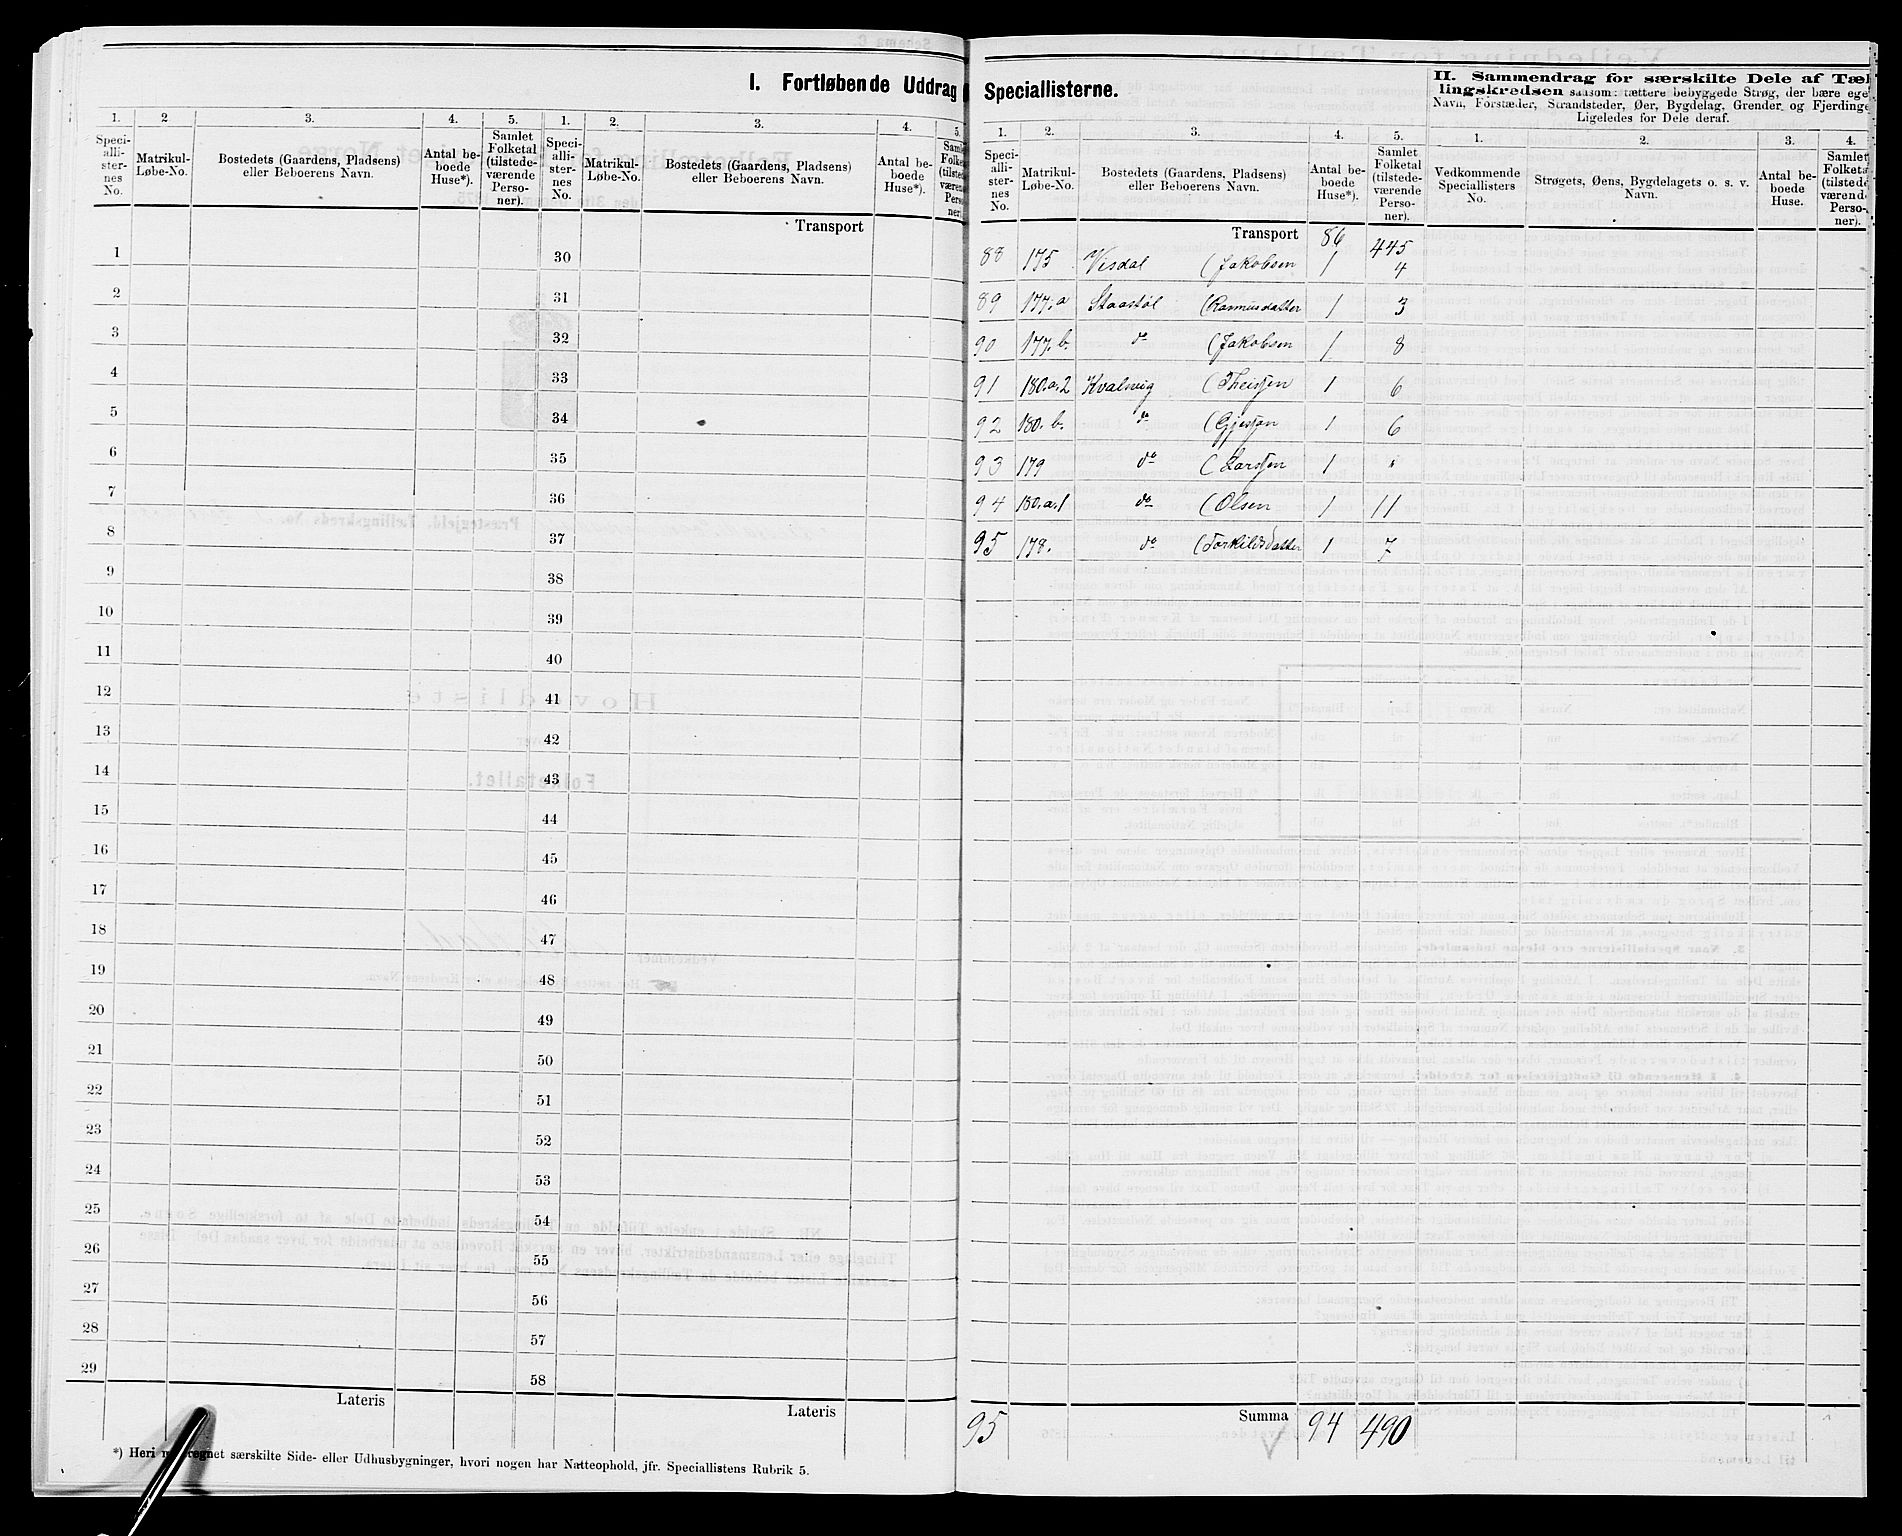 I. Fortløbende Uddrag
1. 2. 3. 4. 5. 1. 2. 3. 4. 5.
Speciallisternes No. Matrikul-Løbe-No. Bostedets (Gaardens, Pladsens) eller Beboerens Navn. Antal beboede Huse*). Samlet Folketal (tilstedeværende Personer). Speciallisternes No. Matrikul-Løbe-No. Bostedets (Gaardens, Pladsens) eller Beboerens Navn. Antal beboede Huse*).
Transport
1 30
2 31
3 32
4 33
5 34
6 35
7 36
8 37
9 38
10 39
11 40
12 41
13 42
14 43
15 44
16 45
17 46
18 47
19 48
20 49
21 50
22 51
23 52
24 53
25 54
26 55
27 56
28 57
29 58
Lateris Lateris
særskilte Side- eller Udhusbygninger, hvori nogen har Natteophold, jfr. Speciallistens Rubrik 5.
Speciallisterne.
1. 2. 3. 4. 5.
Speciallisternes No. Matrikul-Løbe-No. Bostedets (Gaardens, Pladsens) eller Beboerens Navn. Antal beboede Huse*). Samlet Folketal (tilstedeværende Personer).
Transport 86 445
88 175 Visdal (Jakobsen 1 4
89 177.a Staastøl (Rasmusdatter 1 3
90 177.b. do (Jakobsen 1 8
91 180.a.2 Kvalvig (Theisen 1 6
92 180.b. do 1 6
93 179 do (Larsen 1 "
94 180.a.1 do (Olsen 1 11
95 178. do (Torkildsdatter 1 7
95 Summa 94 490
II. Sammendrag for særskilte Dele af Tæl-
lingskredsen saasom: tættere bebyggede Strøg, der bære ege
Navn, Forstæder, Strandsteder, Øer, Bygdelag, Grender og Fjerdinge
Ligeledes for Dele deraf.
1. 2. 3. 4.
Vedkommende Speciallisters No. Strøgets, Øens, Bygdelagets o. s. v. Navn. Antal beboede Huse. Samlet Folketal (tilstedeværende Personer).